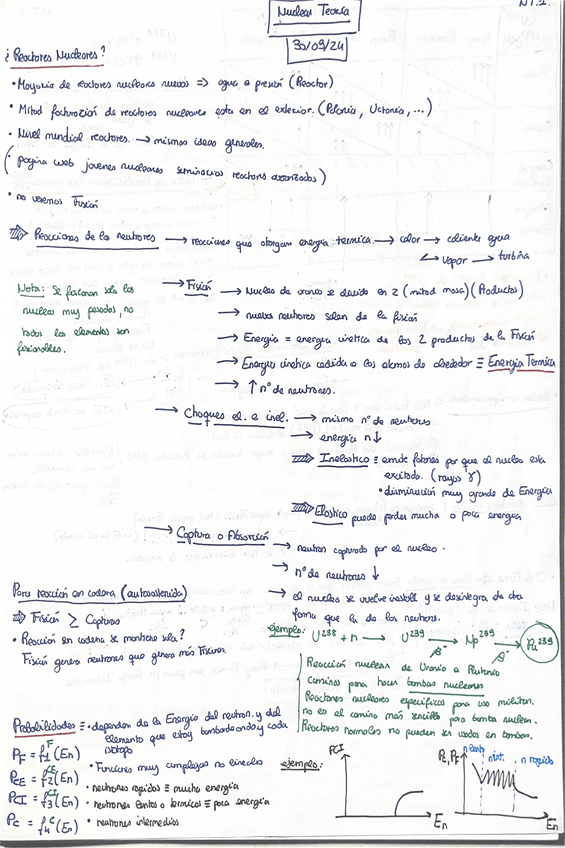 NT.1.
Nuclear Teoría
30/09/24
¿Reactores Nucleares?
• Mayoría de reactores nucleares nuevos => agua a presión (Reactor)
• Mitad facturación de reactores nucleares esta en el exterior. (Polonia, Ucrania, ...)
• Nivel mundial reactores. → mismas ideas generales.
(• pagina web jovenes nucleares seminarios reactores avanzados)
• no veremos Fusión
Reacciones de los neutrones → reacciones que otorgan energía termica → calor → calienta agua
↳ vapor → turbina
Nota: Se fisionan solo los
nucleos muy pesados, no
todos los elementos son
fisionables.
→ Fisión → Nucleo de uranio se divide en 2 (mitad masa) (Productos)
→ nuevos neutrones salen de la fisión
→ Energía = energía cinetica de los 2 productos de la Fisión
→ Energía cinetica cedida a los atomos de alrededor ≡ Energía Termica
→ ↑ nº de neutrones.
→ Choques el. e inel. → mismo nº de neutrones
→ energía n ↓
Inelastico ≡ emite fotones por que el nucleo esta
excitado. (rayos γ)
• disminución muy grande de Energía
Elastico puede perder mucha o poca energía
→ Captura o Absorción → neutron capturado por el nucleo.
→ nº de neutrones ↓
→ el nucleo se vuelve instable y se desintegra de otra
forma que la de los neutrones.
Para reacción en cadena (autosostenida)
⇒ Fisión ≥ Captura
• Reacción en cadena se mantiene sola?
Fisión genera neutrones que genera más Fisiones.
ejemplo: U²³⁸ + n → U²³⁹ → β⁻ Np²³⁹ → β⁻ Pu²³⁹
Reacción nuclear de Uranio a Plutonio
Caminos para hacer bombas nucleares
Reactores nucleares especificos para uso militar.
no es el camino más sencillo para bomba nuclear.
Reactores normales no pueden ser usados en bombas.
Probabilidades ≡ • dependen de la Energía del neutron y del
elemento que estoy bombardeando y cada
isotopo
P_F = f₁^F (En)
• Funciones muy complejas no lineales
P_CE = f₂^CE (En)
• neutrones rapidos ≡ mucha energía
P_CI = f₃^CI (En)
• neutrones lentos o termicos ≡ poca energía
P_C = f₄^C (En)
• neutrones intermedios
ejemplo:
P_CI
En
P_C, P_F
n lento
n int.
n rapido
En